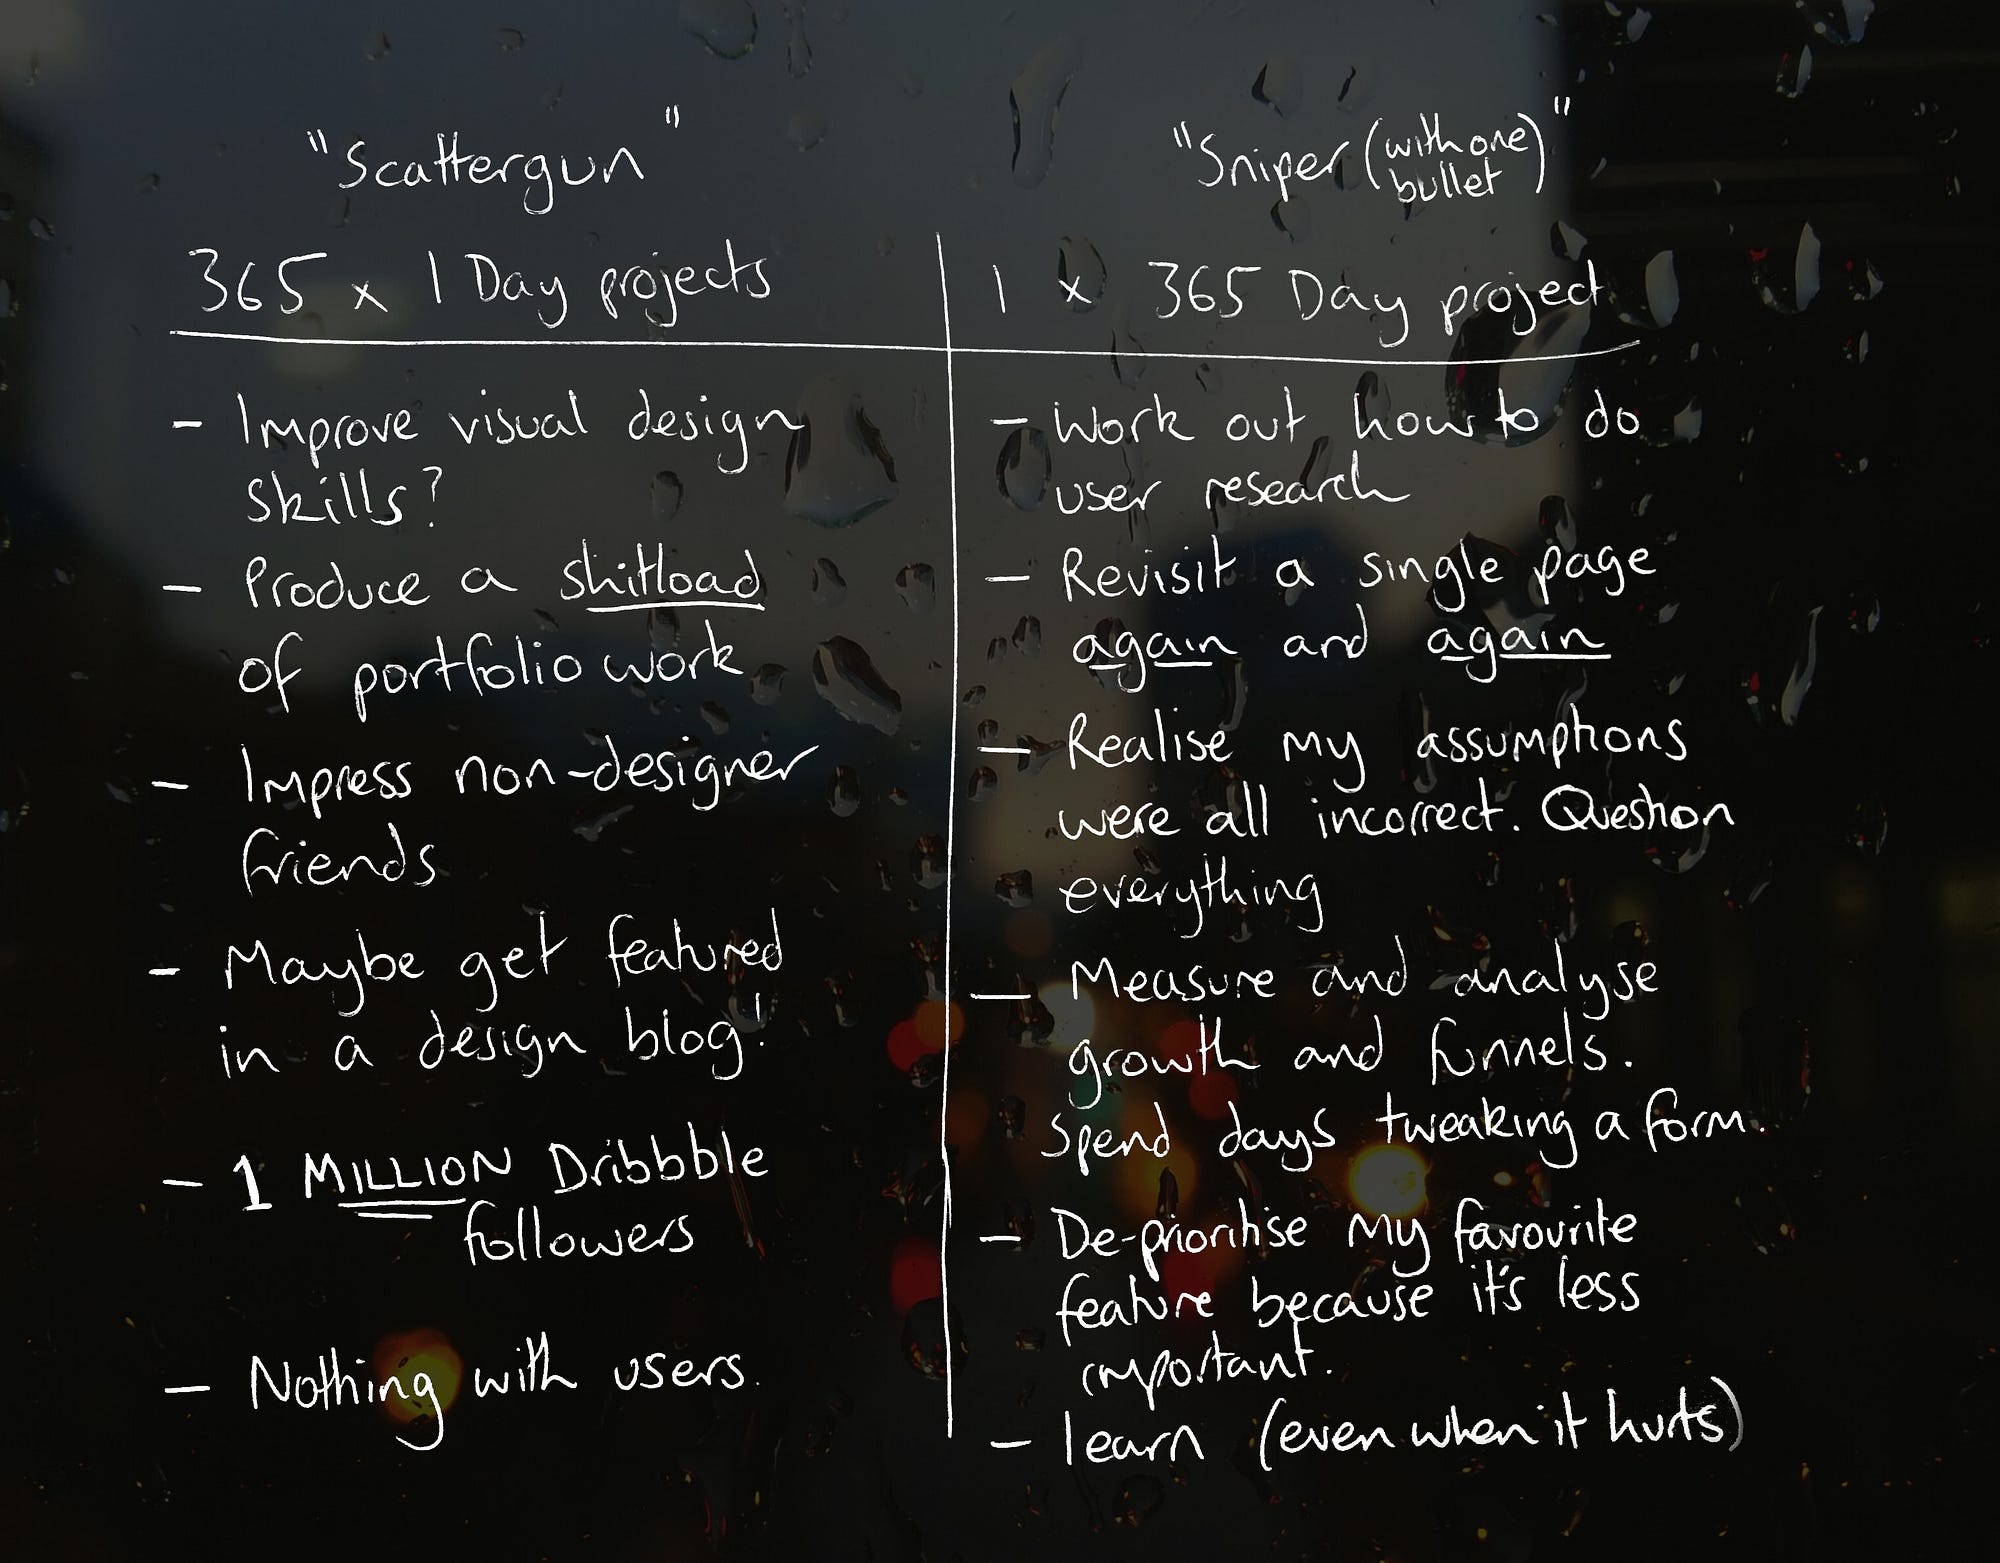 "Scattergun"
365 x 1 Day projects
- Improve visual design
skills?
- Produce a shitload
of portfolio work
- Impress non-designer
friends
- Maybe get featured
in a design blog!
- 1 MILLION Dribbble
followers
- Nothing with users.
"Sniper (with one
bullet)"
1 x 365 Day project
- Work out how to do
user research
- Revisit a single page
again and again
- Realise my assumptions
were all incorrect. Question
everything
- Measure and analyse
growth and funnels.
Spend days tweaking a form.
- De-prioritise my favourite
feature because it's less
important.
- learn (even when it hurts)